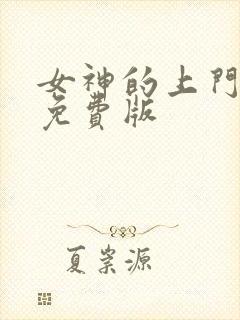 女神的上門
免費版
夏崇源